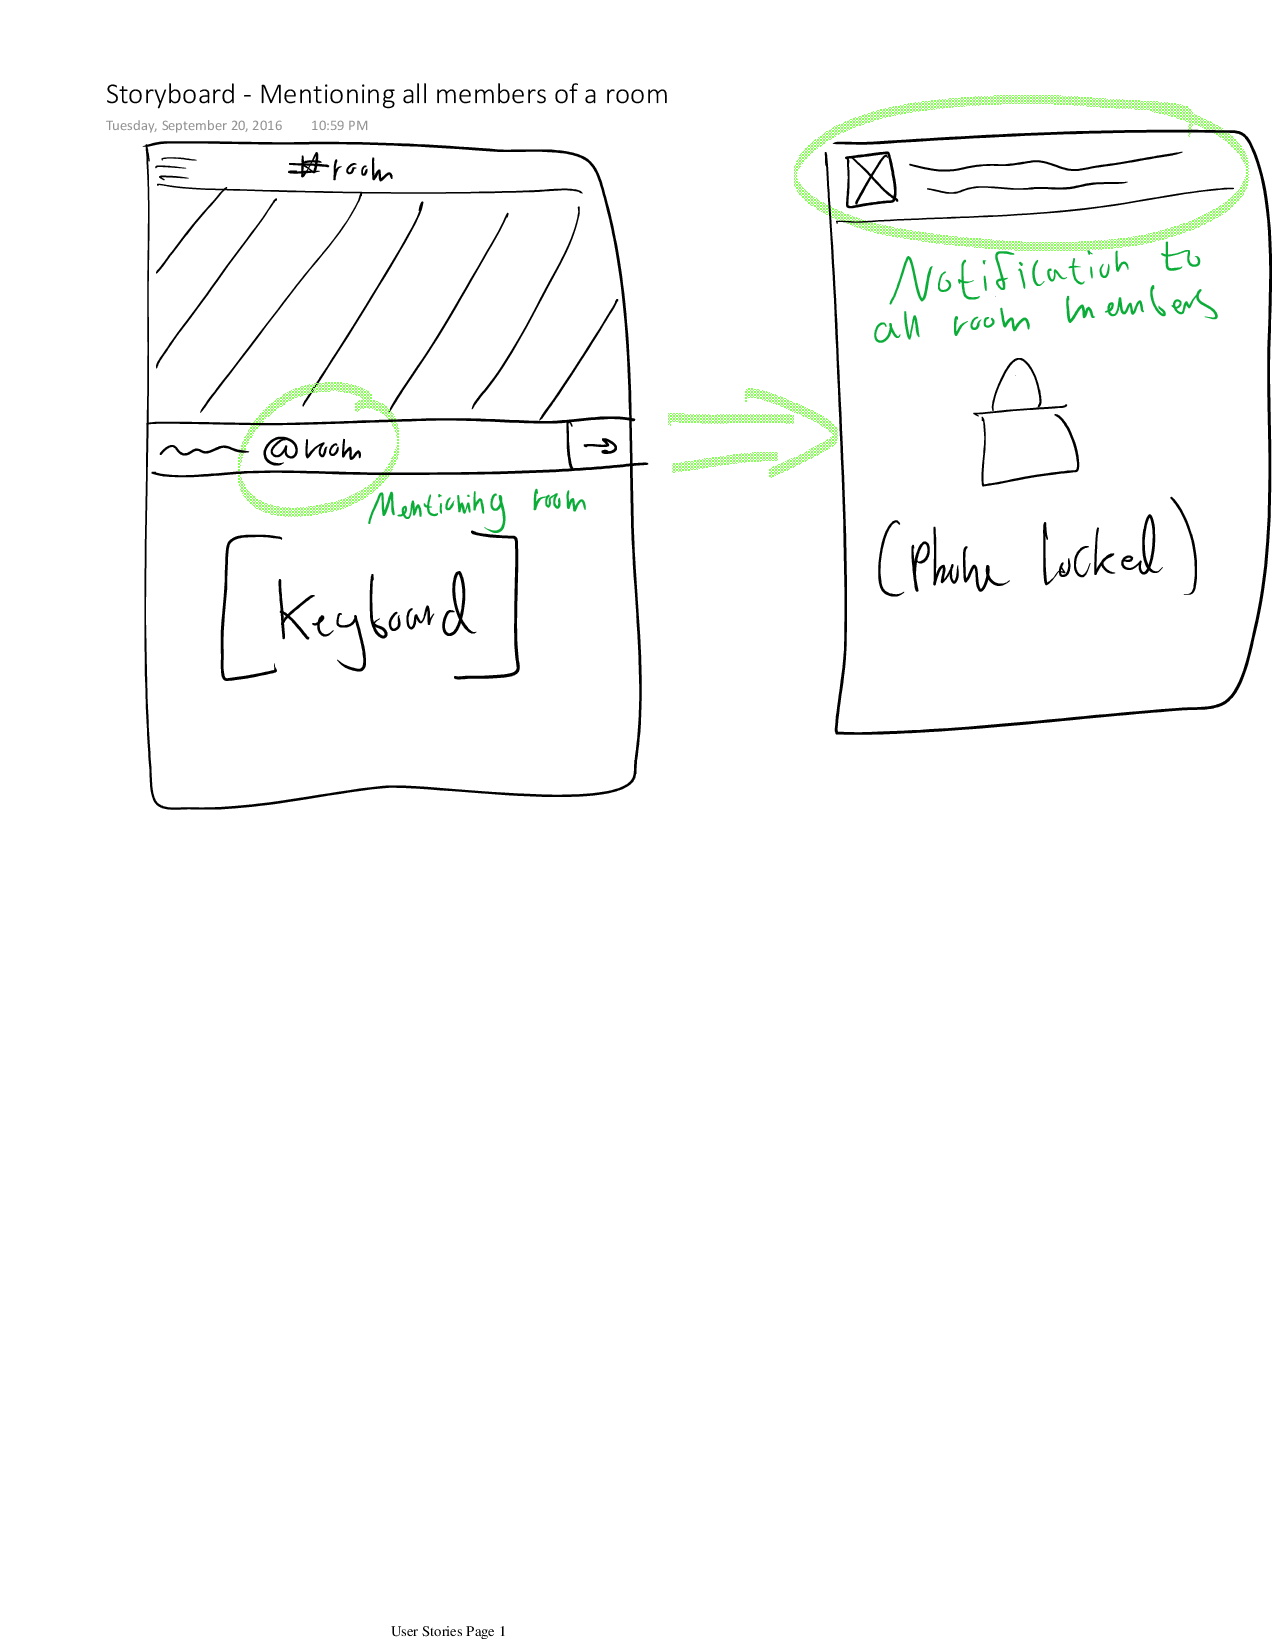 Storyboard - Mentioning all members of a room
Tuesday, September 20, 2016 10:59 PM
#room
@room
Mentioning room
Keyboard
Notification to
all room members
(Phone locked)
User Stories Page 1